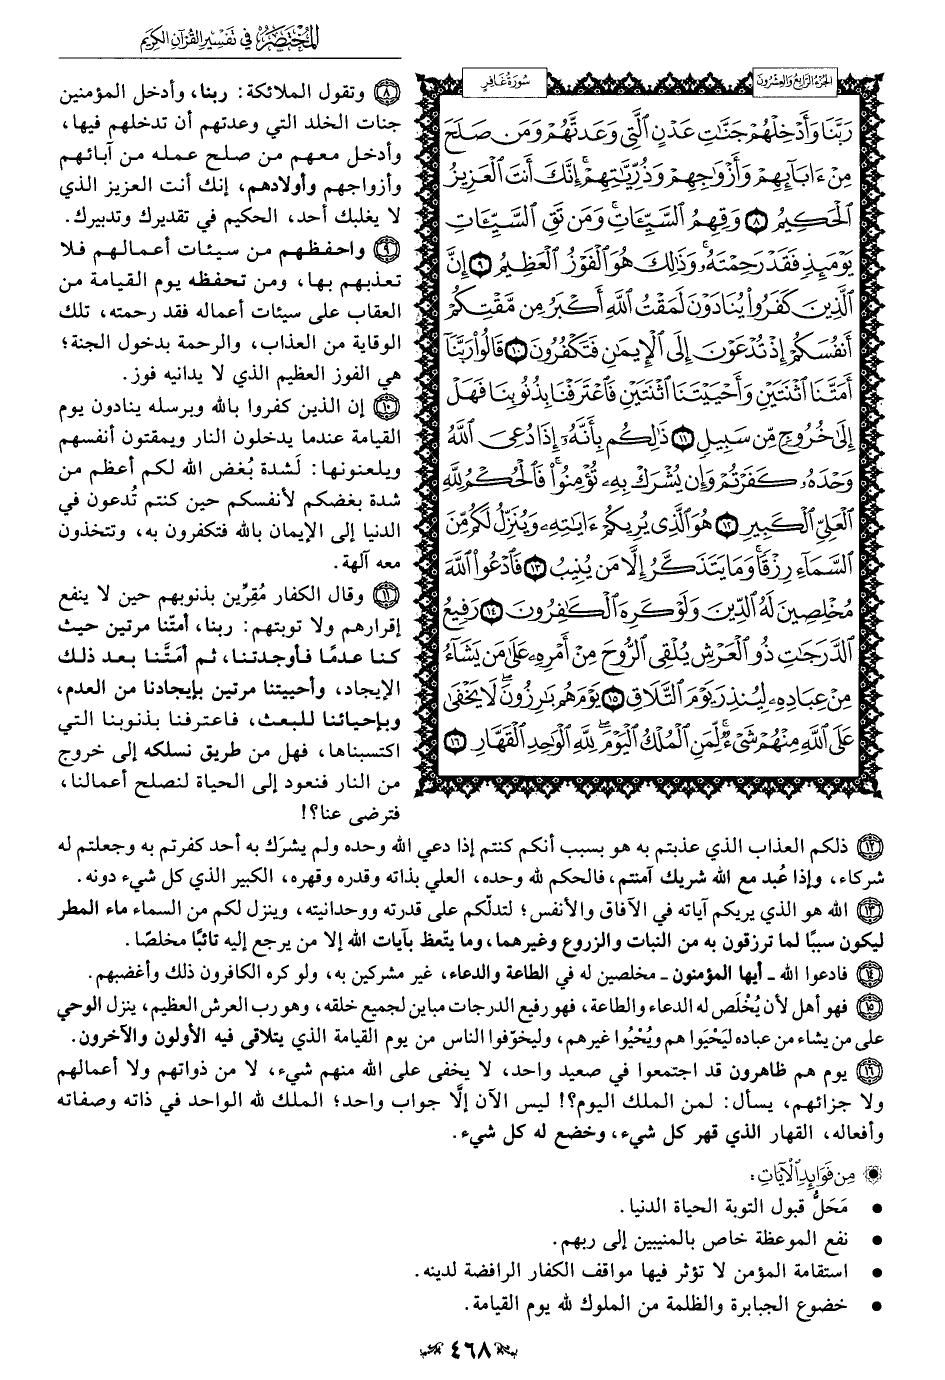 المختصر في تفسير القرآن الكريم
الجزء الرابع والعشرون
سورة غافر
رَبَّنَا وَأَدْخِلْهُمْ جَنَّٰتِ عَدْنٍ ٱلَّتِى وَعَدتَّهُمْ وَمَن صَلَحَ
مِنْ ءَابَآئِهِمْ وَأَزْوَٰجِهِمْ وَذُرِّيَّٰتِهِمْ ۚ إِنَّكَ أَنتَ ٱلْعَزِيزُ
ٱلْحَكِيمُ ٨ وَقِهِمُ ٱلسَّيِّـَٔاتِ ۚ وَمَن تَقِ ٱلسَّيِّـَٔاتِ
يَوْمَئِذٍ فَقَدْ رَحِمْتَهُۥ ۚ وَذَٰلِكَ هُوَ ٱلْفَوْزُ ٱلْعَظِيمُ ٩ إِنَّ
ٱلَّذِينَ كَفَرُوا۟ يُنَادَوْنَ لَمَقْتُ ٱللَّهِ أَكْبَرُ مِن مَّقْتِكُمْ
أَنفُسَكُمْ إِذْ تُدْعَوْنَ إِلَى ٱلْإِيمَٰنِ فَتَكْفُرُونَ ١٠ قَالُوا۟ رَبَّنَآ
أَمَتَّنَا ٱثْنَتَيْنِ وَأَحْيَيْتَنَا ٱثْنَتَيْنِ فَٱعْتَرَفْنَا بِذُنُوبِنَا فَهَلْ
إِلَىٰ خُرُوجٍ مِّن سَبِيلٍ ١١ ذَٰلِكُم بِأَنَّهُۥٓ إِذَا دُعِىَ ٱللَّهُ
وَحْدَهُۥ كَفَرْتُمْ وَإِن يُشْرَكْ بِهِۦ تُؤْمِنُوا۟ ۚ فَٱلْحُكْمُ لِلَّهِ
ٱلْعَلِىِّ ٱلْكَبِيرِ ١٢ هُوَ ٱلَّذِى يُرِيكُمْ ءَايَٰتِهِۦ وَيُنَزِّلُ لَكُم مِّنَ
ٱلسَّمَآءِ رِزْقًا ۚ وَمَا يَتَذَكَّرُ إِلَّا مَن يُنِيبُ ١٣ فَٱدْعُوا۟ ٱللَّهَ
مُخْلِصِينَ لَهُ ٱلدِّينَ وَلَوْ كَرِهَ ٱلْكَٰفِرُونَ ١٤ رَفِيعُ
ٱلدَّرَجَٰتِ ذُو ٱلْعَرْشِ يُلْقِى ٱلرُّوحَ مِنْ أَمْرِهِۦ عَلَىٰ مَن يَشَآءُ
مِنْ عِبَادِهِۦ لِيُنذِرَ يَوْمَ ٱلتَّلَاقِ ١٥ يَوْمَ هُم بَٰرِزُونَ ۖ لَا يَخْفَىٰ
عَلَى ٱللَّهِ مِنْهُمْ شَىْءٌ ۚ لِّمَنِ ٱلْمُلْكُ ٱلْيَوْمَ ۖ لِلَّهِ ٱلْوَٰحِدِ ٱلْقَهَّارِ ١٦
٨ وتقول الملائكة: ربنا، وأدخل المؤمنين
جنات الخلد التي وعدتهم أن تدخلهم فيها،
وأدخل معهم من صلح عمله من آبائهم
وأزواجهم وأولادهم، إنك أنت العزيز الذي
لا يغلبك أحد، الحكيم في تقديرك وتدبيرك.
٩ واحفظهم من سيئات أعمالهم فلا
تعذبهم بها، ومن تحفظه يوم القيامة من
العقاب على سيئات أعماله فقد رحمته، تلك
الوقاية من العذاب، والرحمة بدخول الجنة؛
هي الفوز العظيم الذي لا يدانيه فوز.
١٠ إن الذين كفروا بالله وبرسله ينادون يوم
القيامة عندما يدخلون النار ويمقتون أنفسهم
ويلعنونها: لَشدة بُغض الله لكم أعظم من
شدة بغضكم لأنفسكم حين كنتم تُدعون في
الدنيا إلى الإيمان بالله فتكفرون به، وتتخذون
معه آلهة.
١١ وقال الكفار مُقِرِّين بذنوبهم حين لا ينفع
إقرارهم ولا توبتهم: ربنا، أمتّنا مرتين حيث
كنا عدمًا فأوجدتنا، ثم أمَتَّنا بعد ذلك
الإيجاد، وأحييتنا مرتين بإيجادنا من العدم،
وبإحيائنا للبعث، فاعترفنا بذنوبنا التي
اكتسبناها، فهل من طريق نسلكه إلى خروج
من النار فنعود إلى الحياة لنصلح أعمالنا،
فترضى عنا؟!
١٢ ذلكم العذاب الذي عذبتم به هو بسبب أنكم كنتم إذا دعي الله وحده ولم يشرَك به أحد كفرتم به وجعلتم له
شركاء، وإذا عُبد مع الله شريك آمنتم، فالحكم لله وحده، العلي بذاته وقدره وقهره، الكبير الذي كل شيء دونه.
١٣ الله هو الذي يريكم آياته في الآفاق والأنفس؛ لتدلّكم على قدرته ووحدانيته، وينزل لكم من السماء ماء المطر
ليكون سببًا لما ترزقون به من النبات والزروع وغيرهما، وما يتعظ بآيات الله إلا من يرجع إليه تائبًا مخلصًا.
١٤ فادعوا الله - أيها المؤمنون - مخلصين له في الطاعة والدعاء، غير مشركين به، ولو كره الكافرون ذلك وأغضبهم.
١٥ فهو أهل لأن يُخْلَص له الدعاء والطاعة، فهو رفيع الدرجات مباين لجميع خلقه، وهو رب العرش العظيم، ينزل الوحي
على من يشاء من عباده ليَحْيَوا هم ويُحْيُوا غيرهم، وليخوّفوا الناس من يوم القيامة الذي يتلاقى فيه الأولون والآخرون.
١٦ يوم هم ظاهرون قد اجتمعوا في صعيد واحد، لا يخفى على الله منهم شيء، لا من ذواتهم ولا أعمالهم
ولا جزائهم، يسأل: لمن الملك اليوم؟! ليس الآن إلَّا جواب واحد؛ الملك لله الواحد في ذاته وصفاته
وأفعاله، القهار الذي قهر كل شيء، وخضع له كل شيء.
من فوائد الآيات:
• مَحَلُّ قبول التوبة الحياة الدنيا.
• نفع الموعظة خاص بالمنيبين إلى ربهم.
• استقامة المؤمن لا تؤثر فيها مواقف الكفار الرافضة لدينه.
• خضوع الجبابرة والظلمة من الملوك لله يوم القيامة.
٤٦٨